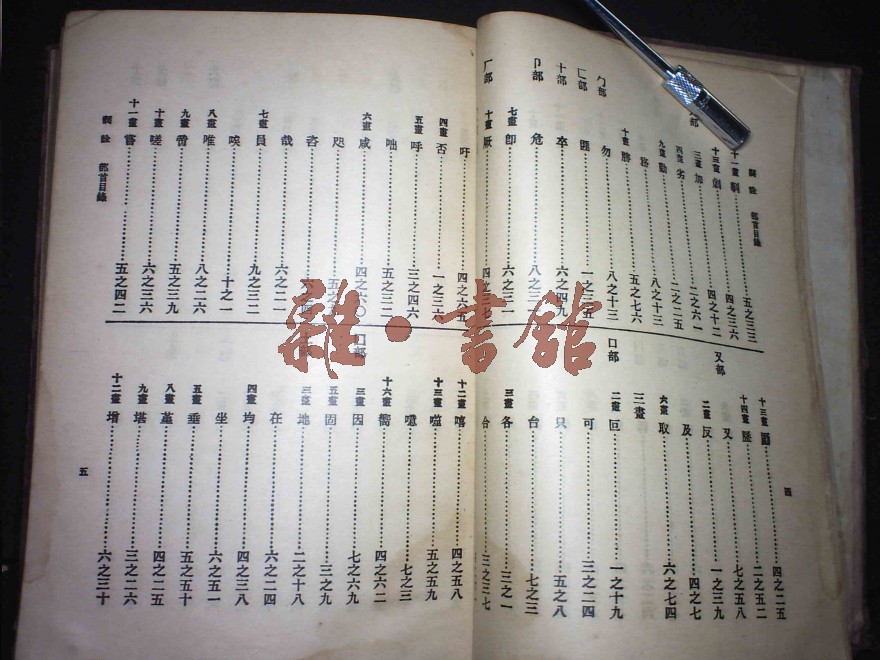 詞詮 部首目錄
十一畫 剸 五之三三
十三畫 劇 四之三六
三畫 加 四之十二
四畫 劣 二之六一
九畫 二之二五
八之十三
十畫 勝 五之七六
勹部 勿 八之十三
匚部 匪 一之三五
十部 卒 六之四九
卩部 危 八之三一
七畫 即 六之三一
厂部 十畫 厥 四之三七
十三畫 四之二五
十四畫 歷 二之五二
又部 又 七之五八
二畫 反 一之三九
及 四之七
六畫 取 六之七四
三畫
口部 二畫 叵 一之十九
可 三之二四
只 五之八
台 七之三
三畫 各 三之一
合 三之三七
四
吁 四之六五
四畫 否 一之三六
五畫 呼 三之四六
呫 五之三二
六畫 咸 四之六〇
咫 五之五
咨
哉 六之二一
七畫 員 九之三二
唉 十之一
八畫 唯 八之二六
九畫 啻 五之三九
十畫 嗟 六之三六
十一畫 嘗 五之四二
詞詮 部首目錄
十二畫 嘻 四之五八
十三畫 噬 五之五九
噫 七之三
十六畫 嚮 四之六二
囗部 三畫 因 七之六九
五畫 固 三之九
三畫 地 二之十八
在 六之二四
四畫 均 四之三八
坐 六之五一
五畫 垂 五之五十
八畫 堇 四之二五
九畫 堪 三之二六
十二畫 增 六之三十
五
雜·書館